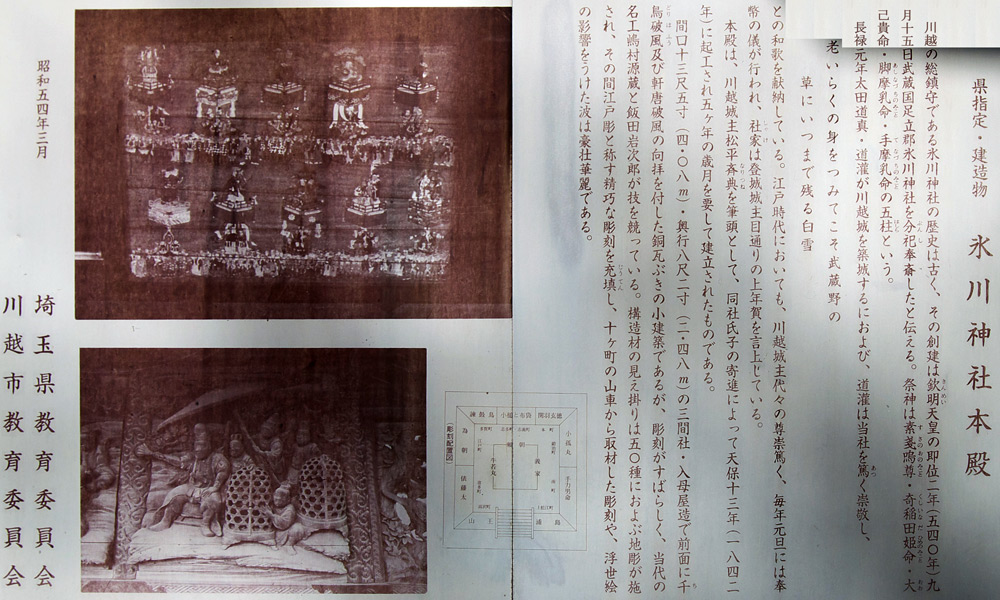 県指定・建造物　氷川神社本殿
川越の総鎮守である氷川神社の歴史は古く、その創建は欽明天皇の即位二年（五四〇年）九
月十五日武蔵国足立郡氷川神社を分祀奉斎したと伝える。祭神は素盞嗚尊・奇稲田姫命・大
己貴命・脚摩乳命・手摩乳命の五柱という。
長禄元年太田道真・道灌が川越城を築城するにおよび、道灌は当社を篤く崇敬し、
老いらくの身をつみてこそ武蔵野の
草にいつまで残る白雪
との和歌を献納している。江戸時代においても、川越城主代々の尊崇篤く、毎年元旦には奉
幣の儀が行われ、社家は登城城主目通りの上年賀を言上している。
本殿は、川越城主松平斉典を筆頭として、同社氏子の寄進によって天保十三年（一八四二
年）に起工され五ヶ年の歳月を要して建立されたものである。
間口十三尺五寸（四・〇八m）・奥行八尺二寸（二・四八m）の三間社・入母屋造で前面に千
鳥破風及び軒唐破風の向拝を付した銅瓦ぶきの小建築であるが、彫刻がすばらしく、当代の
名工嶋村源蔵と飯田岩次郎が技を競っている。構造材の見え掛りは五〇種におよぶ地彫が施
され、その間江戸彫と称す精巧な彫刻を充填し、十ヶ町の山車から取材した彫刻や、浮世絵
の影響をうけた波は豪壮華麗である。
昭和五四年三月
埼玉県教育委員会
川越市教育委員会
（彫刻配置図）
諫鼓鳥
小狐丸
為朝
俵藤太
山王
浦島
牛若丸
頼朝
義家